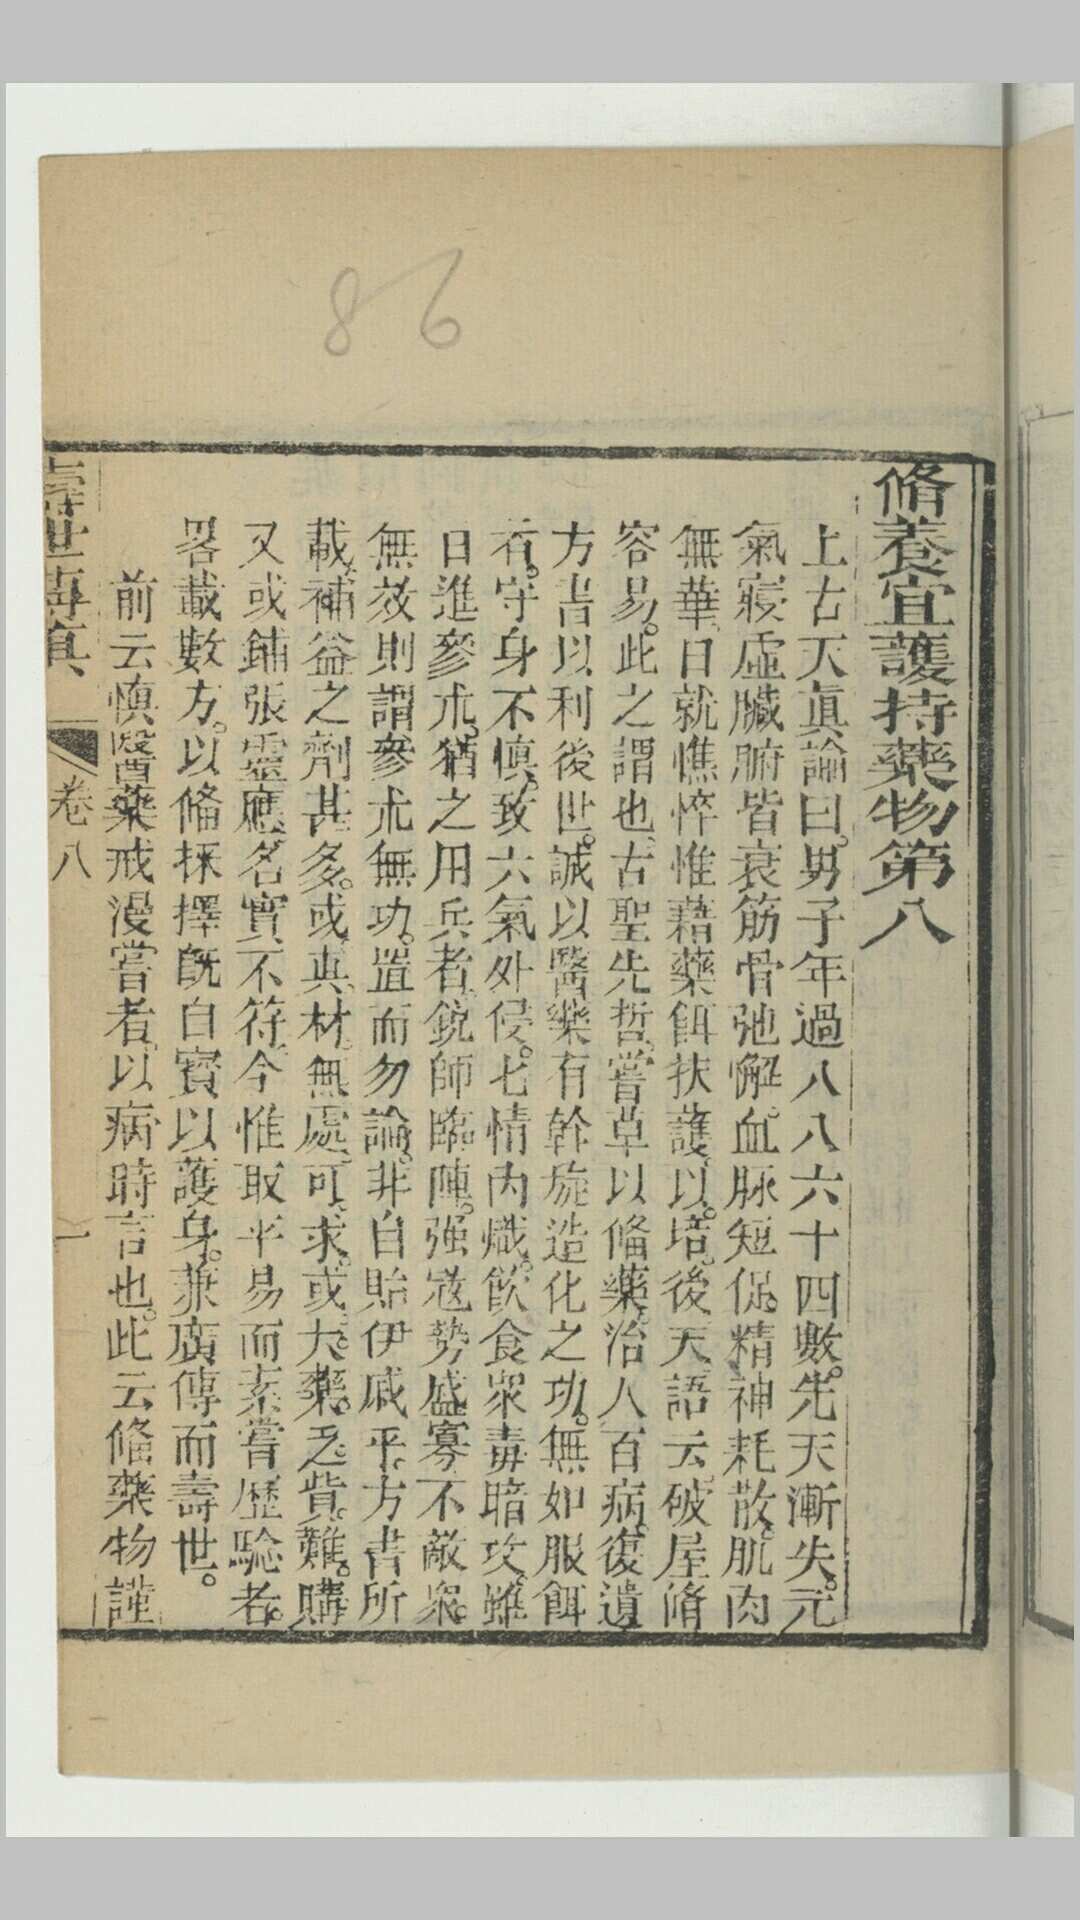 86
脩養宜護持藥物第八
上古天真論曰。男子年過八八六十四數。先天漸失。元
氣寢虛臟腑皆衰筋骨弛懈。血脉短促。精神耗散。肌肉
無華。日就憔悴惟藉藥餌扶護。以培後天。語云。破屋脩
容易。此之謂也。古聖先哲。嘗草以俻藥。治人百病。復遺
方書以利後世。誠以醫藥有幹旋造化之功。無如服餌
者。守身不慎。致六氣外侵。七情內熾。飲食眾毒暗攻。雖
日進參朮。猶之用兵者。銳師臨陣。强寇勢盛寡不敵眾。
無效則謂參朮無功。置而勿論。非自貽伊戚乎。方書所
載。補益之劑甚多。或眞材。無處可求。或大藥。乏貲。難購
又或鋪張靈應。名實不符。今惟取平易而素嘗歷驗者。
畧載數方。以俻採擇旣自寶以護身。兼廣傳而壽世。
前云慎醫藥戒漫嘗者。以病時言也。此云俻藥物謹
壽世傳真
卷八
一